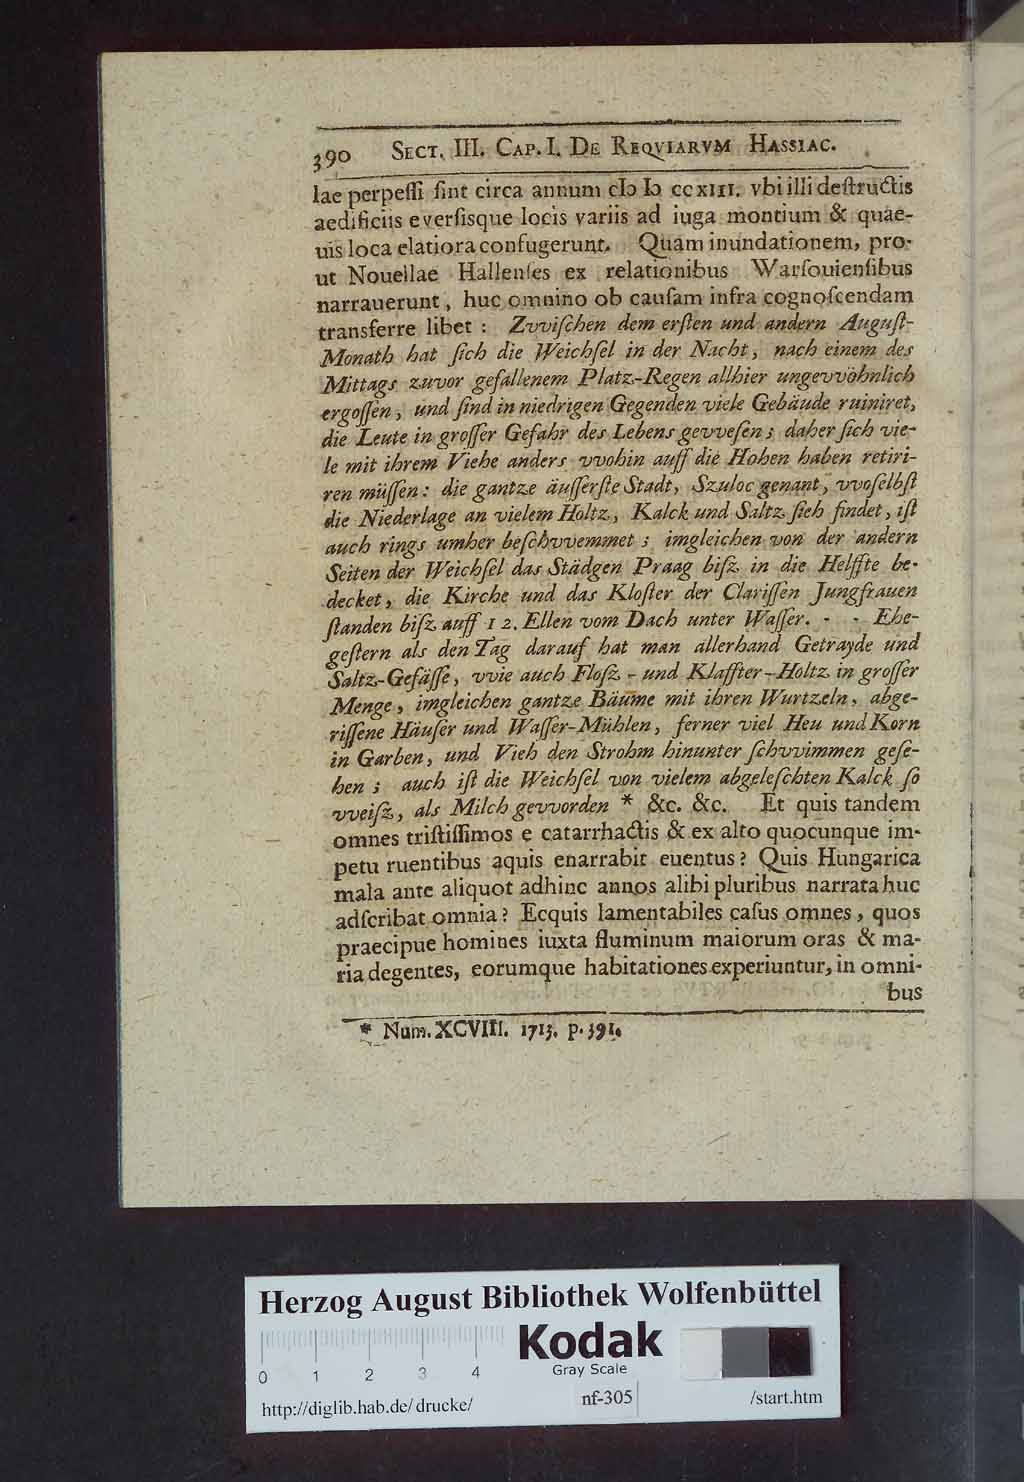 390 SECT. III. CAP. I. DE REQVIARVM HASSIAC.
lae perpeſſi ſint circa annum cIɔ Iɔ ccxIII. vbi illi deſtructis
aedificiis everſisque locis variis ad iuga montium & quae-
uis loca elatiora confugerunt. Quam inundationem, pro-
ut Nouellae Hallenſes ex relationibus Warſouienſibus
narrauerunt, huc omnino ob cauſam infra cognoſcendam
transferre libet : Zvviſchen dem erſten und andern Auguſt-
Monath hat ſich die Weichſel in der Nacht, nach einem des
Mittags zuvor gefallenem Platz-Regen allhier ungevvöhnlich
ergoſſen, und ſind in niedrigen Gegenden viele Gebäude ruiniret,
die Leute in groſſer Gefahr des Lebens gevveſen ; daher ſich vie-
le mit ihrem Viehe anders vvohin auff die Hohen haben retiri-
ren müſſen : die gantze äuſſerſte Stadt, Szuloc genant, vvoſelbſt
die Niederlage an vielem Holtz, Kalck und Saltz ſich findet, iſt
auch rings umher beſchvvemmet ; imgleichen von der andern
Seiten der Weichſel das Städgen Praag biſz in die Helffte be-
decket, die Kirche und das Kloſter der Clariſſen Jungfrauen
ſtanden biſz auff 12. Ellen vom Dach unter Waſſer. - - Ehe-
geſtern als den Tag darauf hat man allerhand Getrayde und
Saltz-Gefäſſe, vvie auch Floſz - und Klaffter-Holtz in groſſer
Menge, imgleichen gantze Bäume mit ihren Wurtzeln, abge-
riſſene Häuſer und Waſſer-Mühlen, ferner viel Heu und Korn
in Garben, und Vieh den Strohm hinunter ſchvvimmen geſe-
hen ; auch iſt die Weichſel von vielem abgeleſchten Kalck ſo
vveiſz, als Milch gevvorden * &c. &c. Et quis tandem
omnes triſtiſſimos e catarrhactis & ex alto quocunque im-
petu ruentibus aquis enarrabit euentus? Quis Hungarica
mala ante aliquot adhinc annos alibi pluribus narrata huc
adſcribat omnia? Ecquis lamentabiles caſus omnes, quos
praecipue homines iuxta fluminum maiorum oras & ma-
ria degentes, eorumque habitationes experiuntur, in omni-
bus
* Num. XCVIII. 1713. p. 391.
Herzog August Bibliothek Wolfenbüttel
Kodak
Gray Scale
0 1 2 3 4
http://diglib.hab.de/drucke/ nf-305 /start.htm